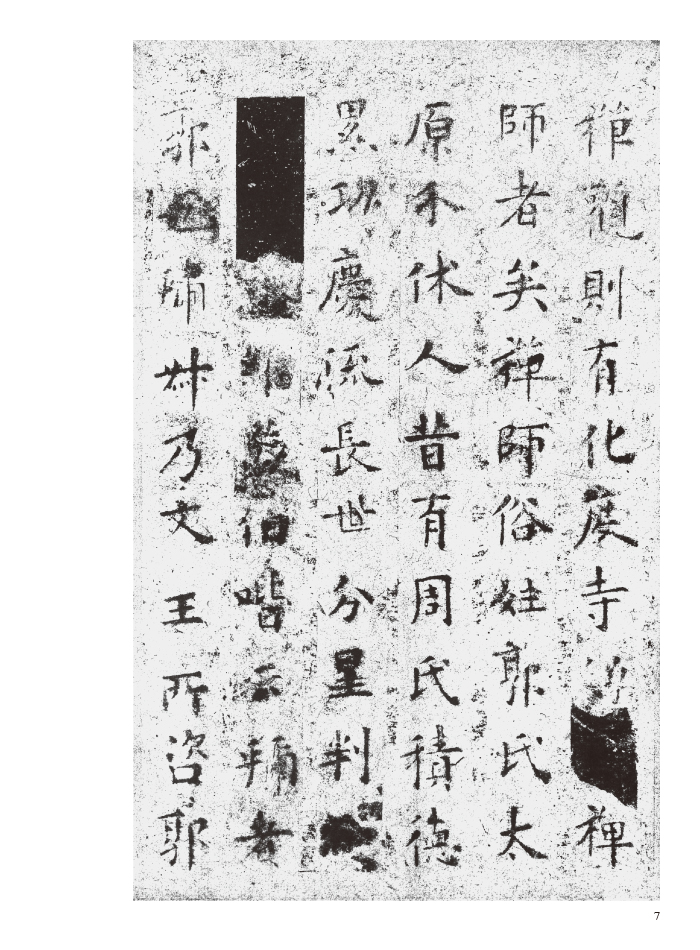 禪觀則有化度寺禪
師者矣禪師俗姓郭氏太
原介休人昔有周氏積德
累功慶流長世分星判
伯喈云虢者
郭虢叔乃文王所咨郭